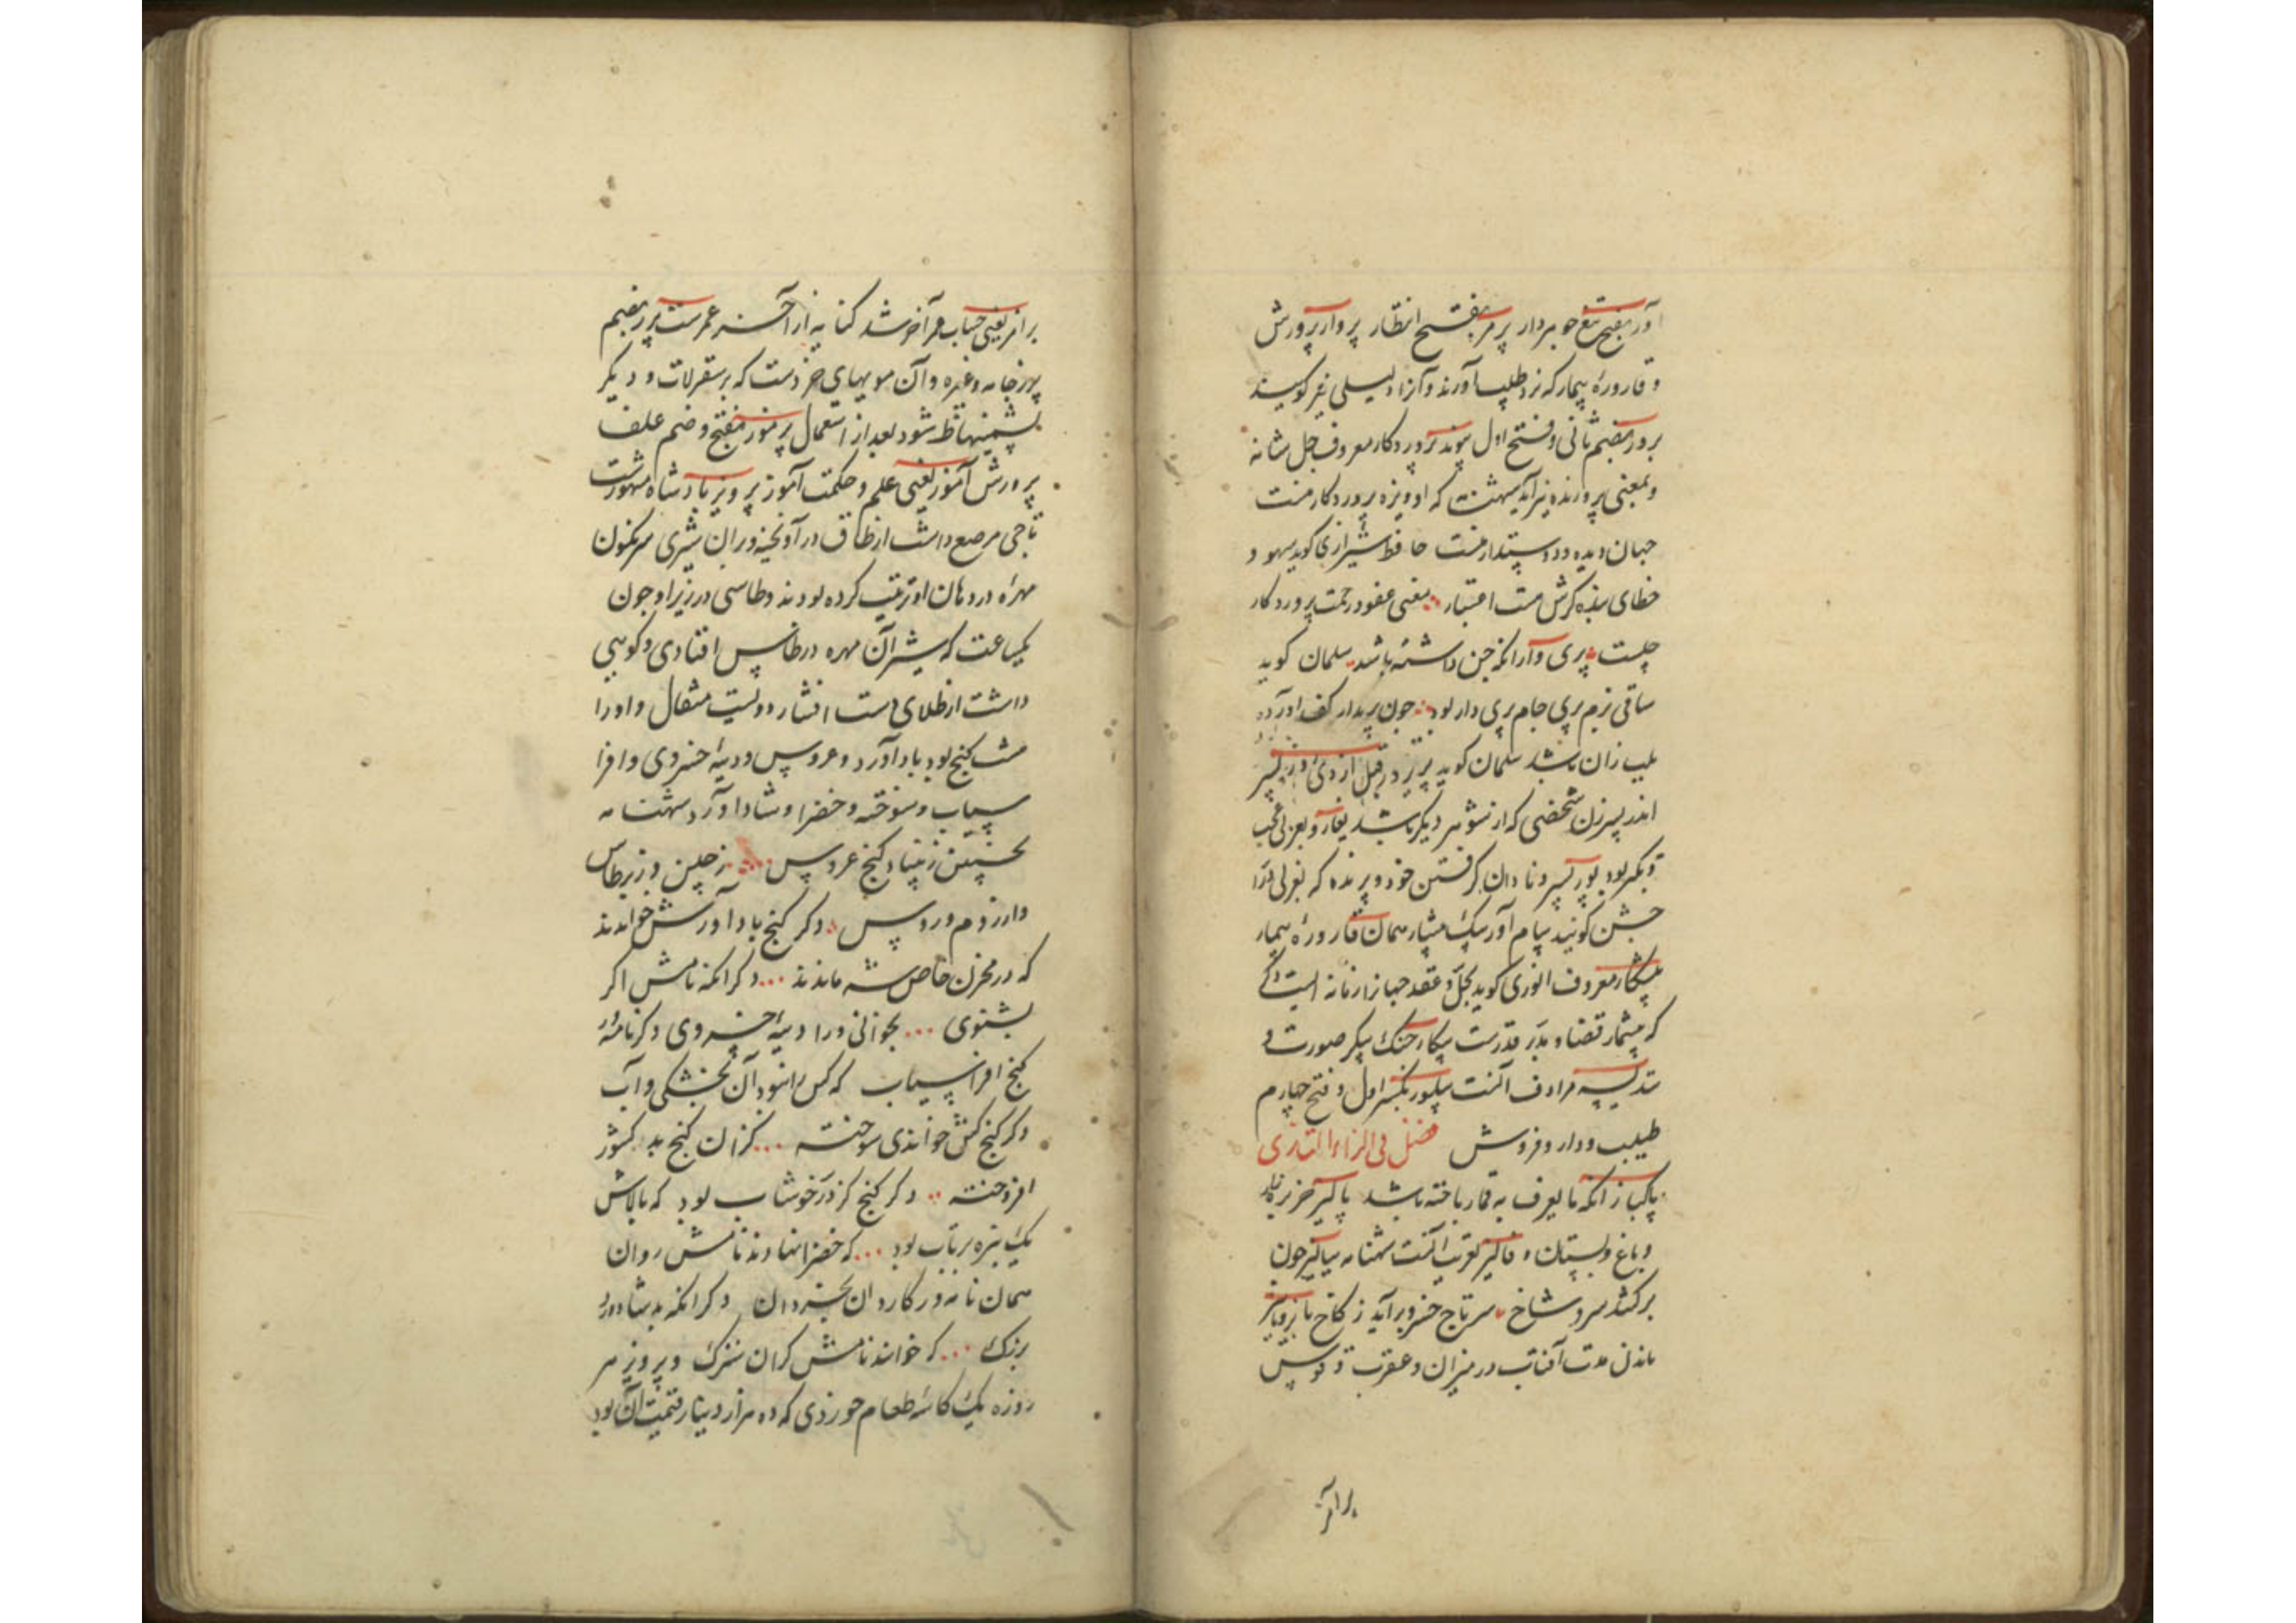 آور بفتح تیغ جوهردار پرمر بفتح انتظار پروار پرورش
و قاروره بیمار که نزد طبیب آورند و آنرا دلیلی نیز گویند
پرور بضم ثانی و فتح اول پیوند پروردگار معروف جل شانه
و بمعنی پرورنده نیز آید که او ویژه پروردگار منست
جهان دیده و دوستدار منست حافظ شیرازی گوید سهو و
خطای بنده گرش هست اعتبار معنی عفو و رحمت پروردگار
چیست پری دار آنکه جن داشته باشد سلمان گوید
ساقی بزم پری جام پری دار بود چون پریدار کف آورده
بلب زان باشد سلمان گوید پریر در قبل از دی روز پسر
اندر پسر زن شخصی که از شوهر دیگر باشد
دیگر بود پور پسر و نادان گرفتن خود و پرنده که بعربی دراج
خشن گویند پیام آور پیک پیشیار همان قاروره بیمار
پیشکار معروف انوری گوید بحل و عقد جهانرا زمانه ایست دگر
که پیشکار قضا و بدر قدرست پیکار جنگ پیکر صورت و
تندیسه مرادف آنست پیلور بکسر اول و فتح چهارم
طبیب و دارو فروش فصل فی الزاء التازی
پاکباز آنکه نا بعرف به قمار باخته باشد پالیز خربزه زار
و باغ و بستان و فالیز تعریب آنست شهنامه بپالیز چون
برکشد سرو شاخ سر تاج خسرو برآید ز کاخ پاییز
ماندن مدت آفتاب در میزان و عقرب و قوس
برافر
برافر یعنی حساب فرآخر شد کنایه از آخر عمرست پرز بضم
پرز جامه و غیره و آن مویهای خردست که بر سقرلات و دیگر
پشمینها ظاهر شود بعد از استعمال پرموز بفتح و ضم علف
پرورش آموز یعنی علم و حکمت آموز پرویز پادشاه مشهورست
تاجی مرصع داشت از طاق در آویخته و بران شیری سرنگون
مهره در دهان او ترتیب کرده بودند و طاسی در زیر او چون
یکساعت گذشتی آن مهره در طاس افتادی و گویی
داشت از طلای دست افشار دویست مثقال و او را
هشت گنج بود باد آورد و عروس و دیبه خسروی و افرا
سیاب و سوخته و خضرا و شادآورد شهنامه
نخستین که بنهاد گنج عروس ز چین و ز برطاس
وز روم و روس دگر گنج باد آورش خواندند
که در مخزن خاص شه ماندند دگر آنکه نامش اگر
بشنوی بخوانی ورا دیبه خسروی دگر نامور
گنج افراسیاب که کس را نبود آن بخشکی و آب
دگر گنج کش خواندی سوخته کزان گنج بد کشور
افروخته دگر گنج کز در خوشاب بود که بالاش
یک نیزه پرتاب بود که خضرا نهادند نامش روان
همان نامور کاردان بخردان دگر آنکه بد شادورد
بزرگ که خوانند نامش گران سترگ و پرویز هر
روزه یک کاسه طعام خوردی که ده هزار دینار قیمت آن بود